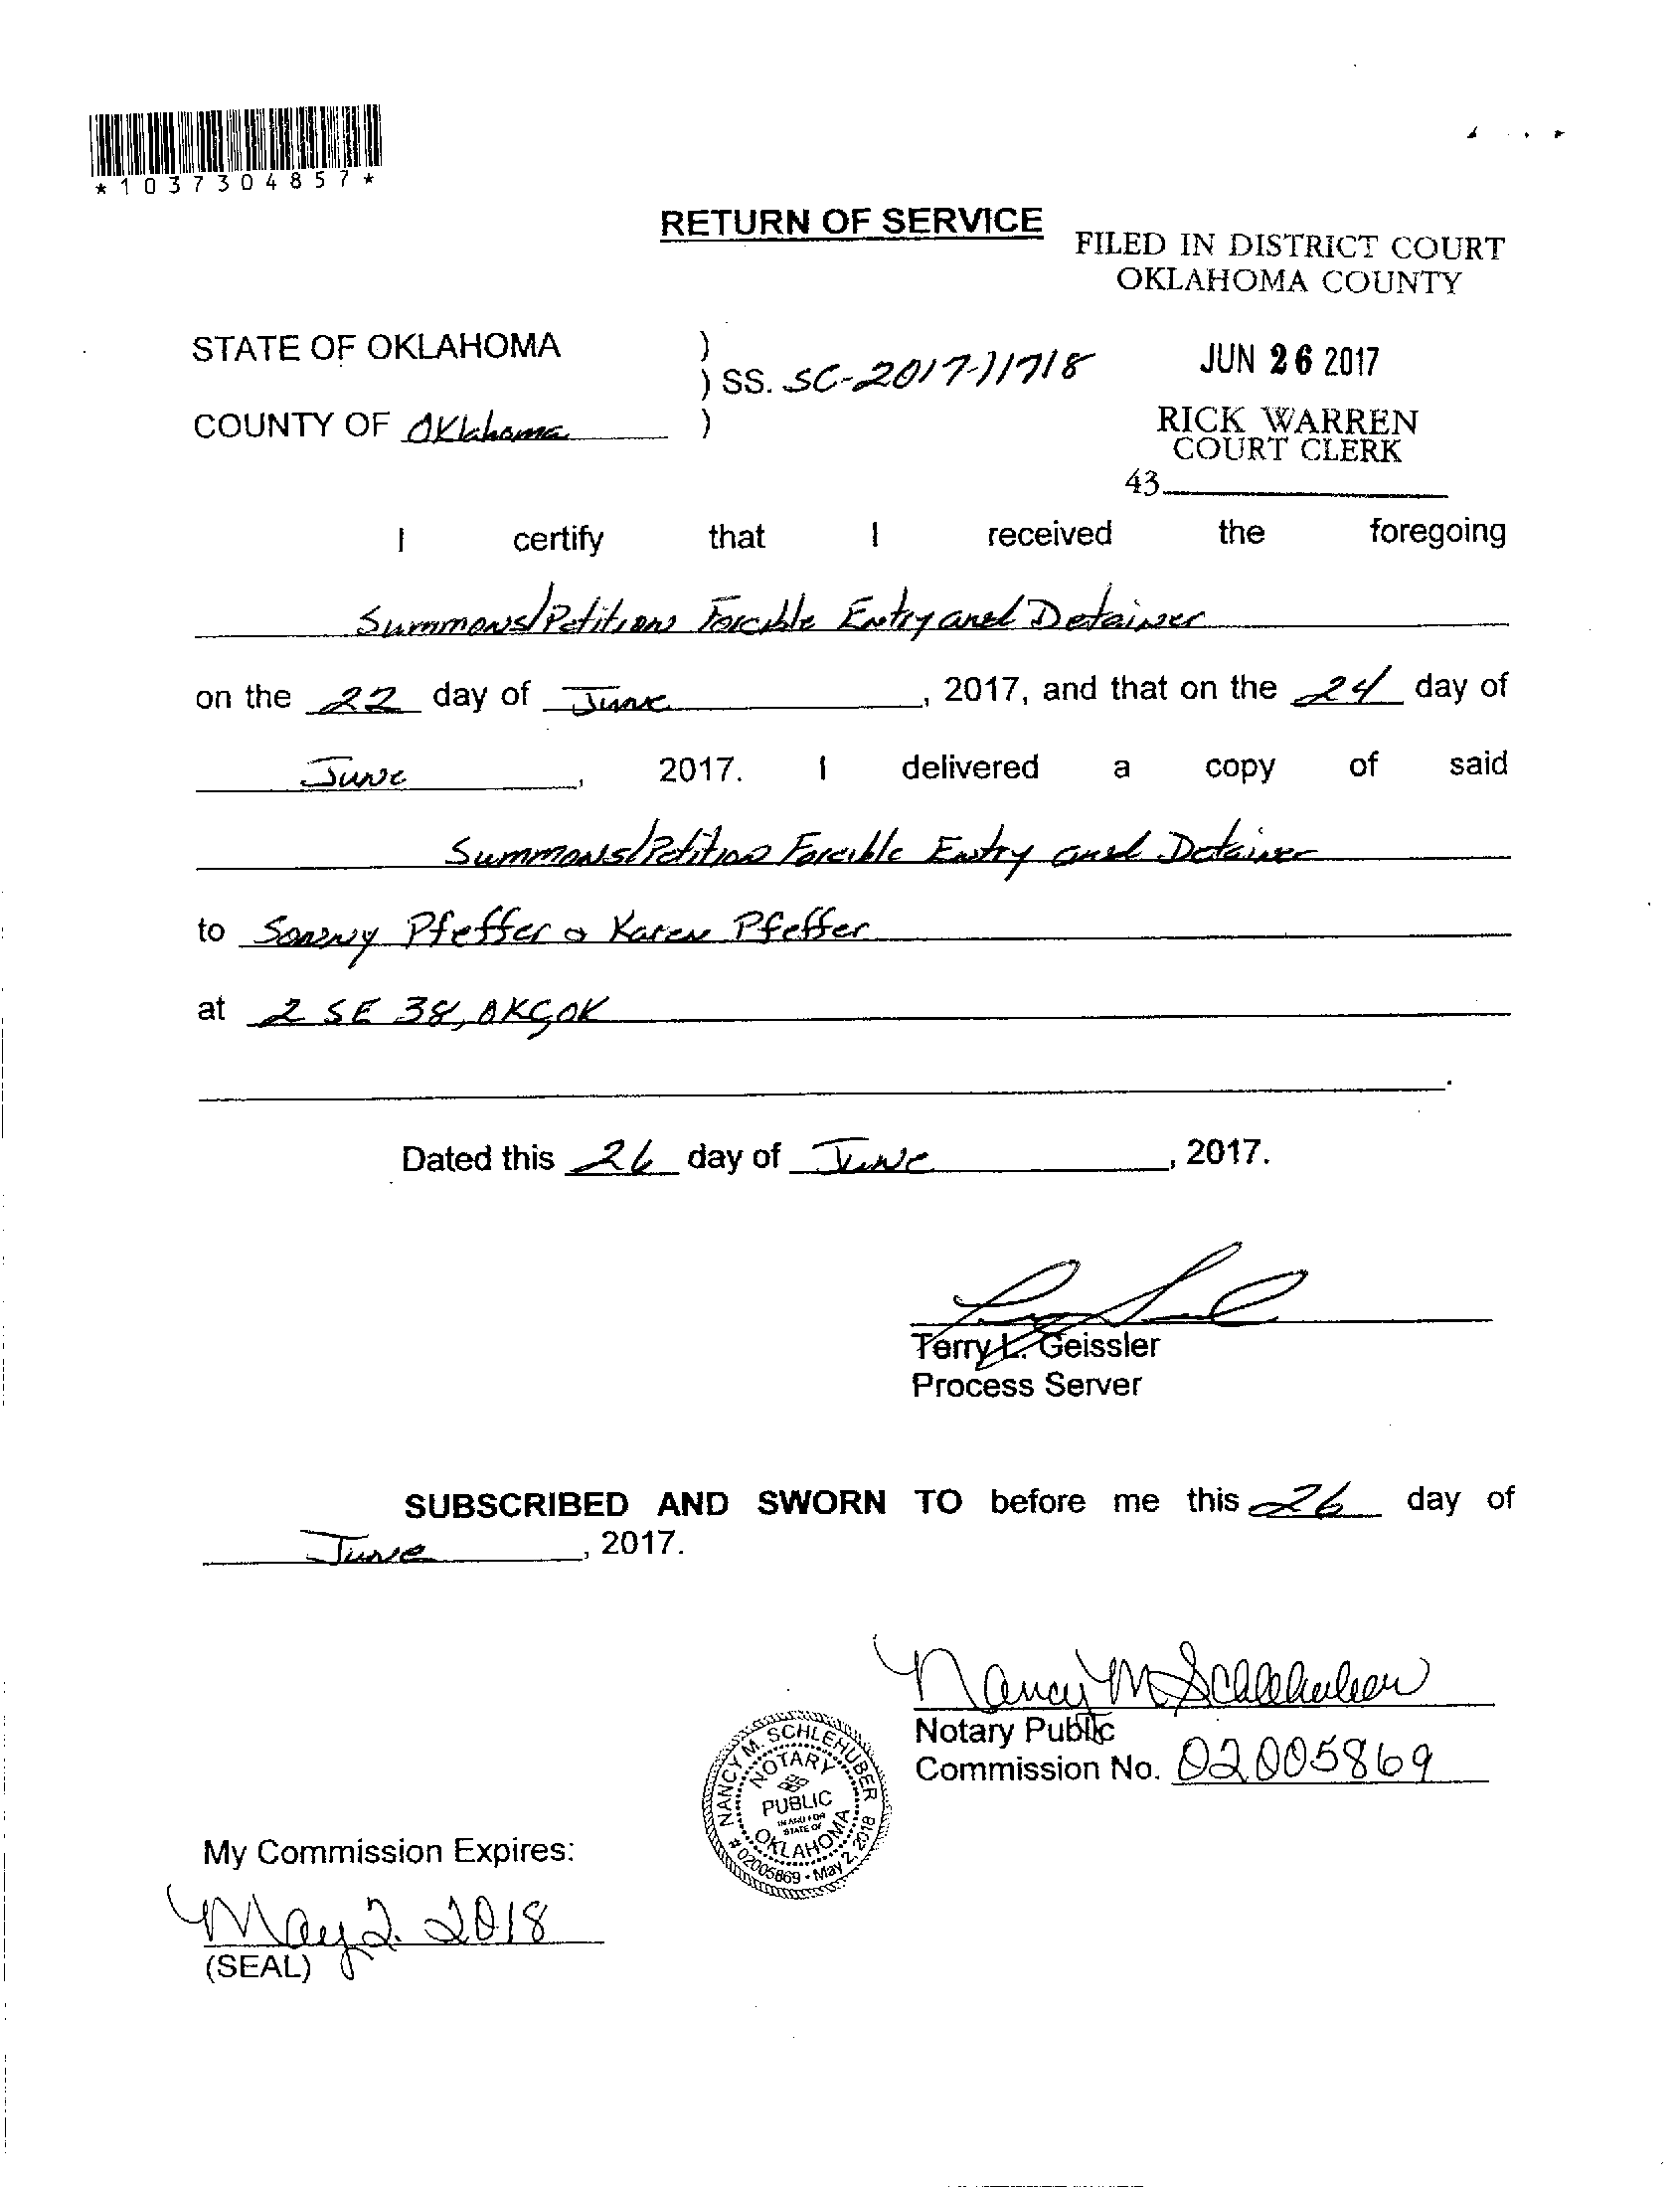 *1037304857*
RETURN OF SERVICE
FILED IN DISTRICT COURT
OKLAHOMA COUNTY
STATE OF OKLAHOMA )
) SS. SC-2017-11718
JUN 26 2017
COUNTY OF Oklahoma )
RICK WARREN
COURT CLERK
43
I certify that I received the foregoing
Summons/Petitions Forcible Entry and Detainer
on the 22 day of June, 2017, and that on the 24 day of
June, 2017. I delivered a copy of said
Summons/Petition Forcible Entry and Detainer
to Sonny Pfeffer & Karen Pfeffer
at 2 SE 38, OKC, OK
.
Dated this 26 day of June, 2017.
Terry L. Geissler
Process Server
SUBSCRIBED AND SWORN TO before me this 26 day of
June, 2017.
Nancy M Schlehuber
Notary Public
Commission No. 02005869
NANCY M. SCHLEHUBER
NOTARY
PUBLIC
IN AND FOR
STATE OF
OKLAHOMA
# 02005869 • May 2, 2018
My Commission Expires:
May 2. 2018
(SEAL)